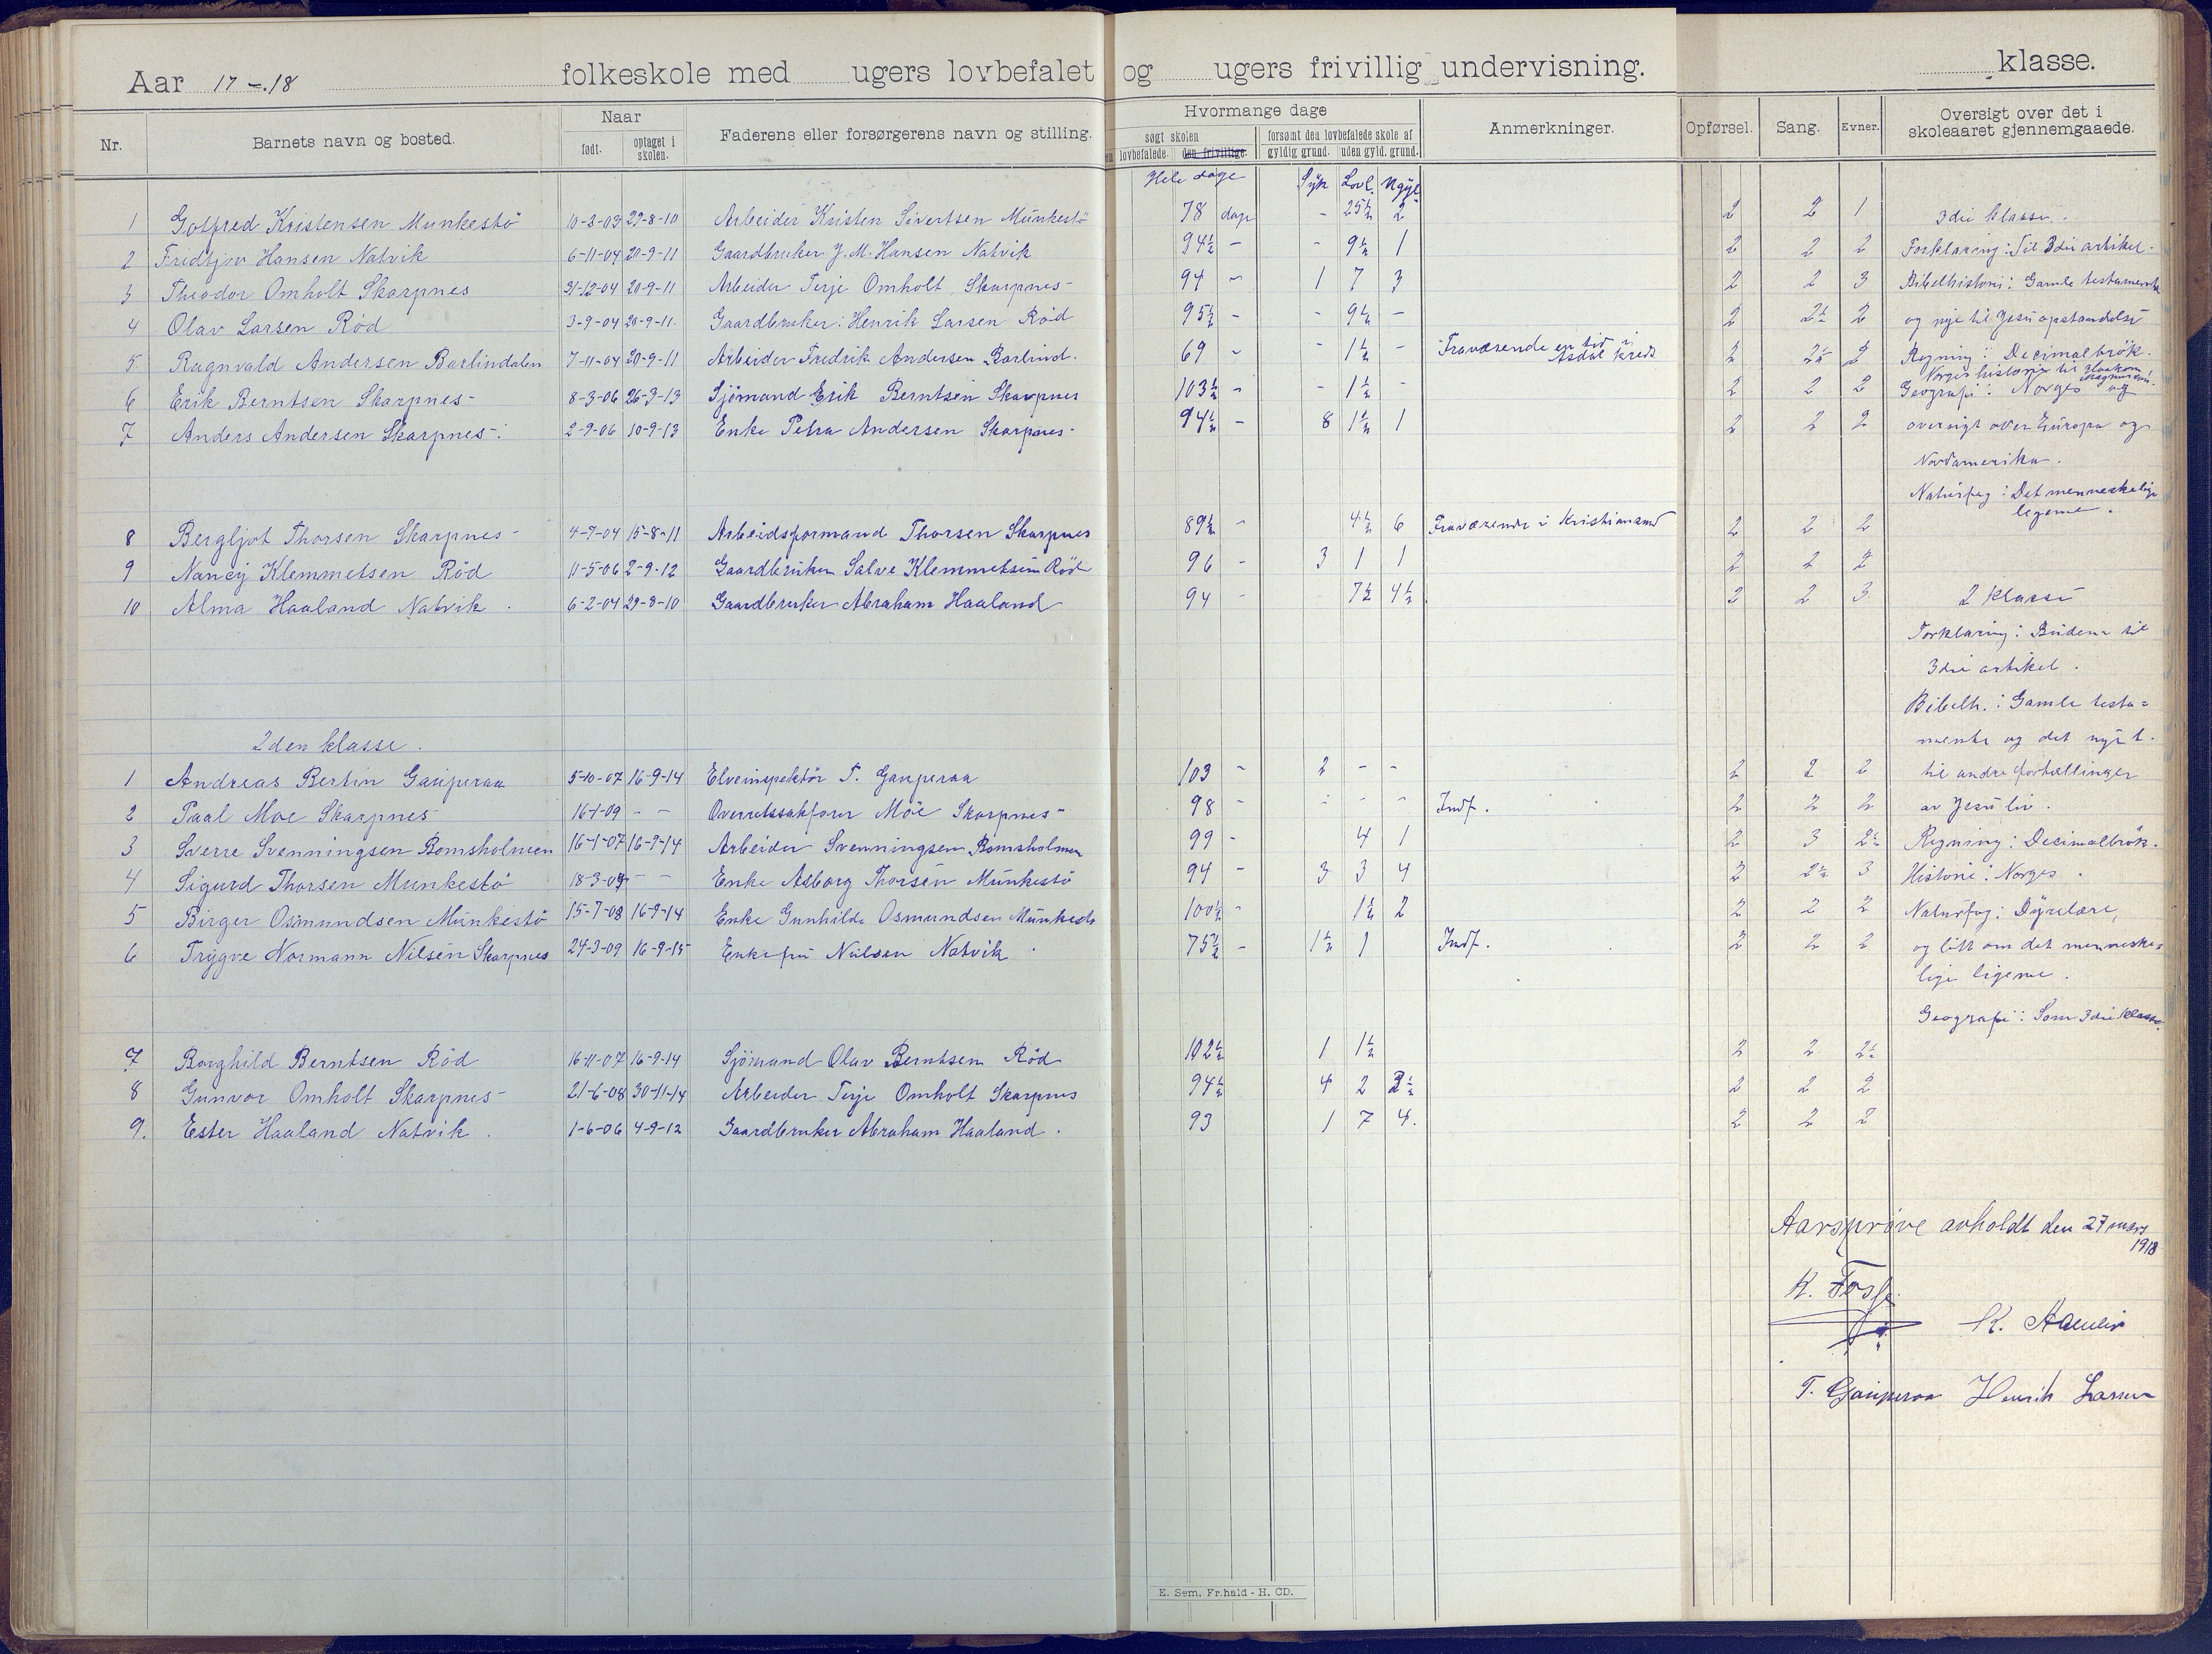 Aar 17-18 folkeskole med ugers lovbefalet og ugers frivillig undervisning. klasse.
Nr. Barnets navn og bosted. Naar født. optaget i skolen. Faderens eller forsørgerens navn og stilling. Hvormange dage søgt skolen lovbefalede. den frivillige. forsømt den lovbefalede skole af gyldig grund. uden gyld. grund. Anmerkninger. Opførsel. Sang. Evner. Oversigt over det i skoleaaret gjennemgaaede.
Hele dage Syk Lovl. Ugyl.
1 Gotfred Kristensen Munkestö 10-3-03 29-8-10 Arbeider Kristen Sivertsen Munkestö 78 dage - 25½ 2 2 2 1 3die klasse.
2 Fridtjov Hansen Natvik 6-11-04 20-9-11 Gaardbruker J. M. Hansen Natvik 94½ - - 9½ 1 2 2 2 Forklaring: Til 3die artikel.
3 Theodor Omholt Skarpnes 31-12-04 20-9-11 Arbeider Terje Omholt Skarpnes- 94 - 1 7 3 2 2 3 Bibelhistorie: Gamle testamente
4 Olav Larsen Röd 3-9-04 20-9-11. Gaardbruker: Henrik Larsen Röd 95½ - - 9½ - 2 2½ 2 og nye til Jesu opstandelse
5 Ragnvald Andersen Barlindalen 7-11-04 20-9-11 Arbeider Fredrik Andersen Barlind. 69 - - 1½ - Fraværende en tid i Asdal kreds 2 2½ 2 Regning: Decimalbrök.
Norges historie til Haakon Magnussön.
6 Erik Berntsen Skarpnes- 8-3-06 26-3-13 Sjömand Erik Berntsen Skarpnes 103½ - - 1½ - 2 2 2 Geografi: Norges og
7 Anders Andersen Skarpnes-. 2-9-06 10-9-13 Enke Petra Andersen Skarpnes- 94½ - 8 1½ 1 2 2 2 oversigt over Europa og
Nordamerika.
Naturfag: Det menneskelige
legeme.
8 Bergljot Thorsen Skarpnes- 4-7-04 15-8-11 Arbeidsformand Thorsen Skarpnes 89½ - 4½ 6 Fraværende i Kristiansand 2 2 2
9 Nancy Klemmetsen Röd 11-5-06 2-9-12 Gaardbruker Salve Klemmetsen Röd 96 - 3 1 1 2 2 2
10 Alma Haaland Natvik. 6-2-04 29-8-10 Gaardbruker Abraham Haaland 94 - 7½ 4½ 2 2 3 2 klasse
Forklaring: Budene til
3die artikel.
Bibelh.: Gamle testa=
mente og det nye t.
2den klasse.
1 Andreas Bertin Gauperaa 5-10-07 16-9-14 Elveinspektör T. Gauperaa 103 - 2 - - 2 2 2 til andre fortællinger
2 Paal Moe Skarpnes- 16-1-09 - - Overretssakfører Moe Skarpnes- 98 - - - - Indf. 2 2 2 av Jesu liv.
3 Sverre Svenningsen Bomsholmen 16-1-07 16-9-14 Arbeider Svenningsen Bomsholmen 99 - 4 1 2 3 2½ Regning: Decimalbrök.
4 Sigurd Thorsen Munkestö 18-3-09 - - Enke Asborg Thorsen Munkestö 94 - 3 3 4 2 2½ 3 Historie: Norges.
5 Birger Osmundsen Munkestö 15-7-08 16-9-14 Enke Gunhilde Osmundsen Munkestö 100½ - 1½ 2 2 2 2 Naturfag: Dyrelære,
6 Trygve Normann Nilsen Skarpnes 24-3-09 16-9-15 Enkefru Nilsen Natvik 75½ - 1½ 1 Indf. 2 2 2 og litt om det menneske=
lige legeme.
Geografi: Som 3die klasse.
7 Borghild Berntsen Röd 16-11-07 16-9-14 Sjömand Olav Berntsen Röd 102½ 1 1½ 2 2 2½
8 Gunvor Omholt Skarpnes- 21-6-08 30-11-14 Arbeider Terje Omholt Skarpnes 94½ 4 2 2½ 2 2 2
9. Ester Haaland Natvik. 1-6-06 4-9-12 Gaardbruker Abraham Haaland. 93 1 7 4. 2 2 2
Aarspröve avholdt den 27 mars 1918
K. Fosse
T. Gauperaa Henrik Larsen
E. Sem, Fr.hald - H. CD.